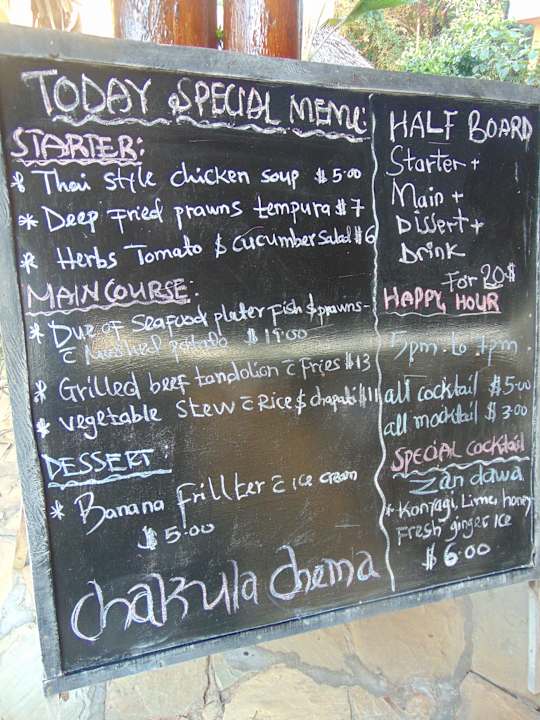 TODAY SPECIAL MEMU:
STARTER:
* Thai style chicken soup $ 5.00
* Deep Fried prawns tempura $ 7
* Herbs Tomato $ Cucumber Salad $ 6
MAIN COURSE:
* Due of seafood plater Fish $ prawns-
c̄ Mushed potato $ 19.00
* Grilled beef tandolion c̄ Fries $ 13
* vegetable stew c̄ Rice $ chapati $ 11
DESSERT
* Banana frillter c̄ ice cream
$ 5.00
chakula chema
HALF BOARD
Starter +
Main +
Dissert +
Drink
For 20 $
HAPPY HOUR
5pm to 7pm
all cocktail $ 5.00
all mocktail $ 3.00
SPECIAL COCKTAIL
Zan dawa
* Konyagi, Lime, honey
Fresh ginger Ice
$ 6.00